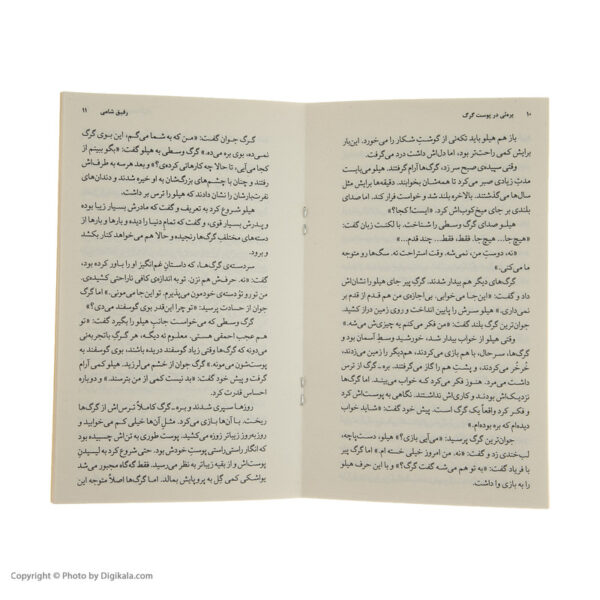 ۱۰ بره‌ئی در پوست گرگ
باز هم هیلو باید تکه‌ئی از گوشتِ شکار را می‌خورد. این‌بار
برایش کمی راحت‌تر بود، اما دل‌اش داشت درد می‌گرفت.
وقتی سپیده‌ی صبح سر زد، گرگ‌ها آرام گرفتند. هیلو می‌بایست
مدتِ زیادی صبر می‌کرد تا همه‌شان بخوابند. دقیقه‌ها برایش مثل
سال‌ها می‌گذشتند. بالاخره بلند شد و خواست فرار کند. اما صدای
بلندی بر جای میخ‌کوب‌اش کرد: «ایست! کجا؟»
هیلو صدای گرگِ وسطی را شناخت. با لکنت زبان گفت:
«هیچ‌جا... هیچ‌جا. فقط، فقط... چند قدم...»
«نه، دوستِ من، نمی‌شه. وقتِ استراحت نه. سگ‌ها رو متوجه
ما می‌کنی.»
گرگ‌های دیگر هم بیدار شدند. گرگ پیر جای هیلو را نشان‌اش
داد و گفت: «این‌جا می‌خوابی. بی‌اجازه‌ی من هم قدم از قدم بر
نمی‌داری.» هیلو سرش را پایین انداخت و روی زمین دراز کشید.
جوان‌ترین گرگ بلند گفت: «من فکر می‌کنم یه چیزی‌ش می‌شه.»
وقتی هیلو از خواب بیدار شد، خورشید وسطِ آسمان بود و
گرگ‌ها، سرحال، با هم بازی می‌کردند، هم‌دیگر را زمین می‌زدند،
خُرخُر می‌کردند، و پشتِ هم را گاز می‌گرفتند. بره ـ گرگ از ترس
داشت می‌مرد. هنوز فکر می‌کرد که خواب می‌بیند. اما گرگ‌ها
نزدیک‌اش بودند و کاری‌اش نداشتند. نگاهی به پوست‌اش کرد
و فکر کرد واقعاً یک گرگ است. پیش خود گفت: «شاید خواب
دیده‌ام که بره بوده‌ام.»
جوان‌ترین گرگ پرسید: «می‌آیی بازی؟» هیلو، دست‌پاچه،
لب‌خندی زد و گفت: «نه. من امروز خیلی خسته ام.» اما گرگ پیر
با فریاد گفت: «به تو هم می‌شه گفت گرگ؟» و با این حرف هیلو
را به بازی وا داشت.
رفیق شامی ۱۱
گرگ جوان گفت: «من که به شما می‌گم، این بوی گرگ
نمی‌ده، بوی بره می‌ده.» گرگ وسطی به هیلو گفت: «بگو ببینم از
کجا می‌آیی، تا حالا چه کارهائی کرده‌ی؟» و بعد هرسه به طرف‌اش
رفتند و چنان با چشم‌های بزرگ‌شان به او خیره شدند و دندان‌های
نفرت‌بارشان را نشان دادند که هیلو را ترس بر داشت.
هیلو شروع کرد به تعریف و گفت که مادرش بسیار زیبا بوده
و پدرش بسیار قوی، و گفت که تمامِ دنیا را دیده و بارها و بارها از
دسته‌های مختلفِ گرگ‌ها رنجیده و حالا هم می‌خواهد کنار بکشد
و برود.
سردسته‌ی گرگ‌ها، که داستانِ غم‌انگیز او را باور کرده بود،
گفت: «نه. حرف‌ش هم نزن. تو به اندازه‌ی کافی ناراحتی کشیده‌ی.
من تو رو تو دسته‌ی خودمون می‌پذیرم. تو این‌جا می‌مونی.» اما گرگ
جوان از حسادت پرسید: «تو چرا این‌قدر بوی گوسفند می‌دی؟»
گرگ وسطی که می‌خواست جانبِ هیلو را بگیرد گفت: «تو
هم عجب احمقی هستی. معلوم نه دیگه، هر گرگ باتجربه‌ئی
می‌دونه که گرگ‌ها وقتی زیاد گوسفند دریده باشند، بوی گوسفند به
پوست‌شون می‌مونه.» گرگ جوان از خشم می‌لرزید. هیلو کمی آرام
گرفت و پیش خود گفت: «بد نیست کمی از من بترسند.» و دوباره
احساس قدرت کرد.
روزها سپری شدند و بره ـ گرگ کاملاً ترس‌اش از گرگ‌ها
ریخت. با آن‌ها بازی می‌کرد. مثلِ آن‌ها خیلی کم می‌خوابید و
روزبه‌روز بیش‌تر زوزه می‌کشید. پوست طوری به تن‌اش چسبیده بود
که انگار راستی‌راستی پوستِ خودش بود. حتی شروع کرد به لیسیدنِ
پوست‌اش و از بقیه زیباتر به نظر می‌رسید. فقط گه‌گاه مجبور می‌شد
یواشکی کمی گِل به پروپایش بمالد. اما گرگ‌ها اصلاً متوجه این
Copyright © Photo by Digikala.com